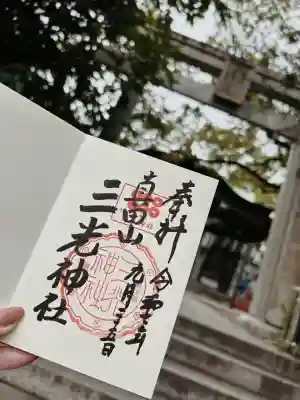 奉拝
令和三年
九月二十五日
真田山
三光神社